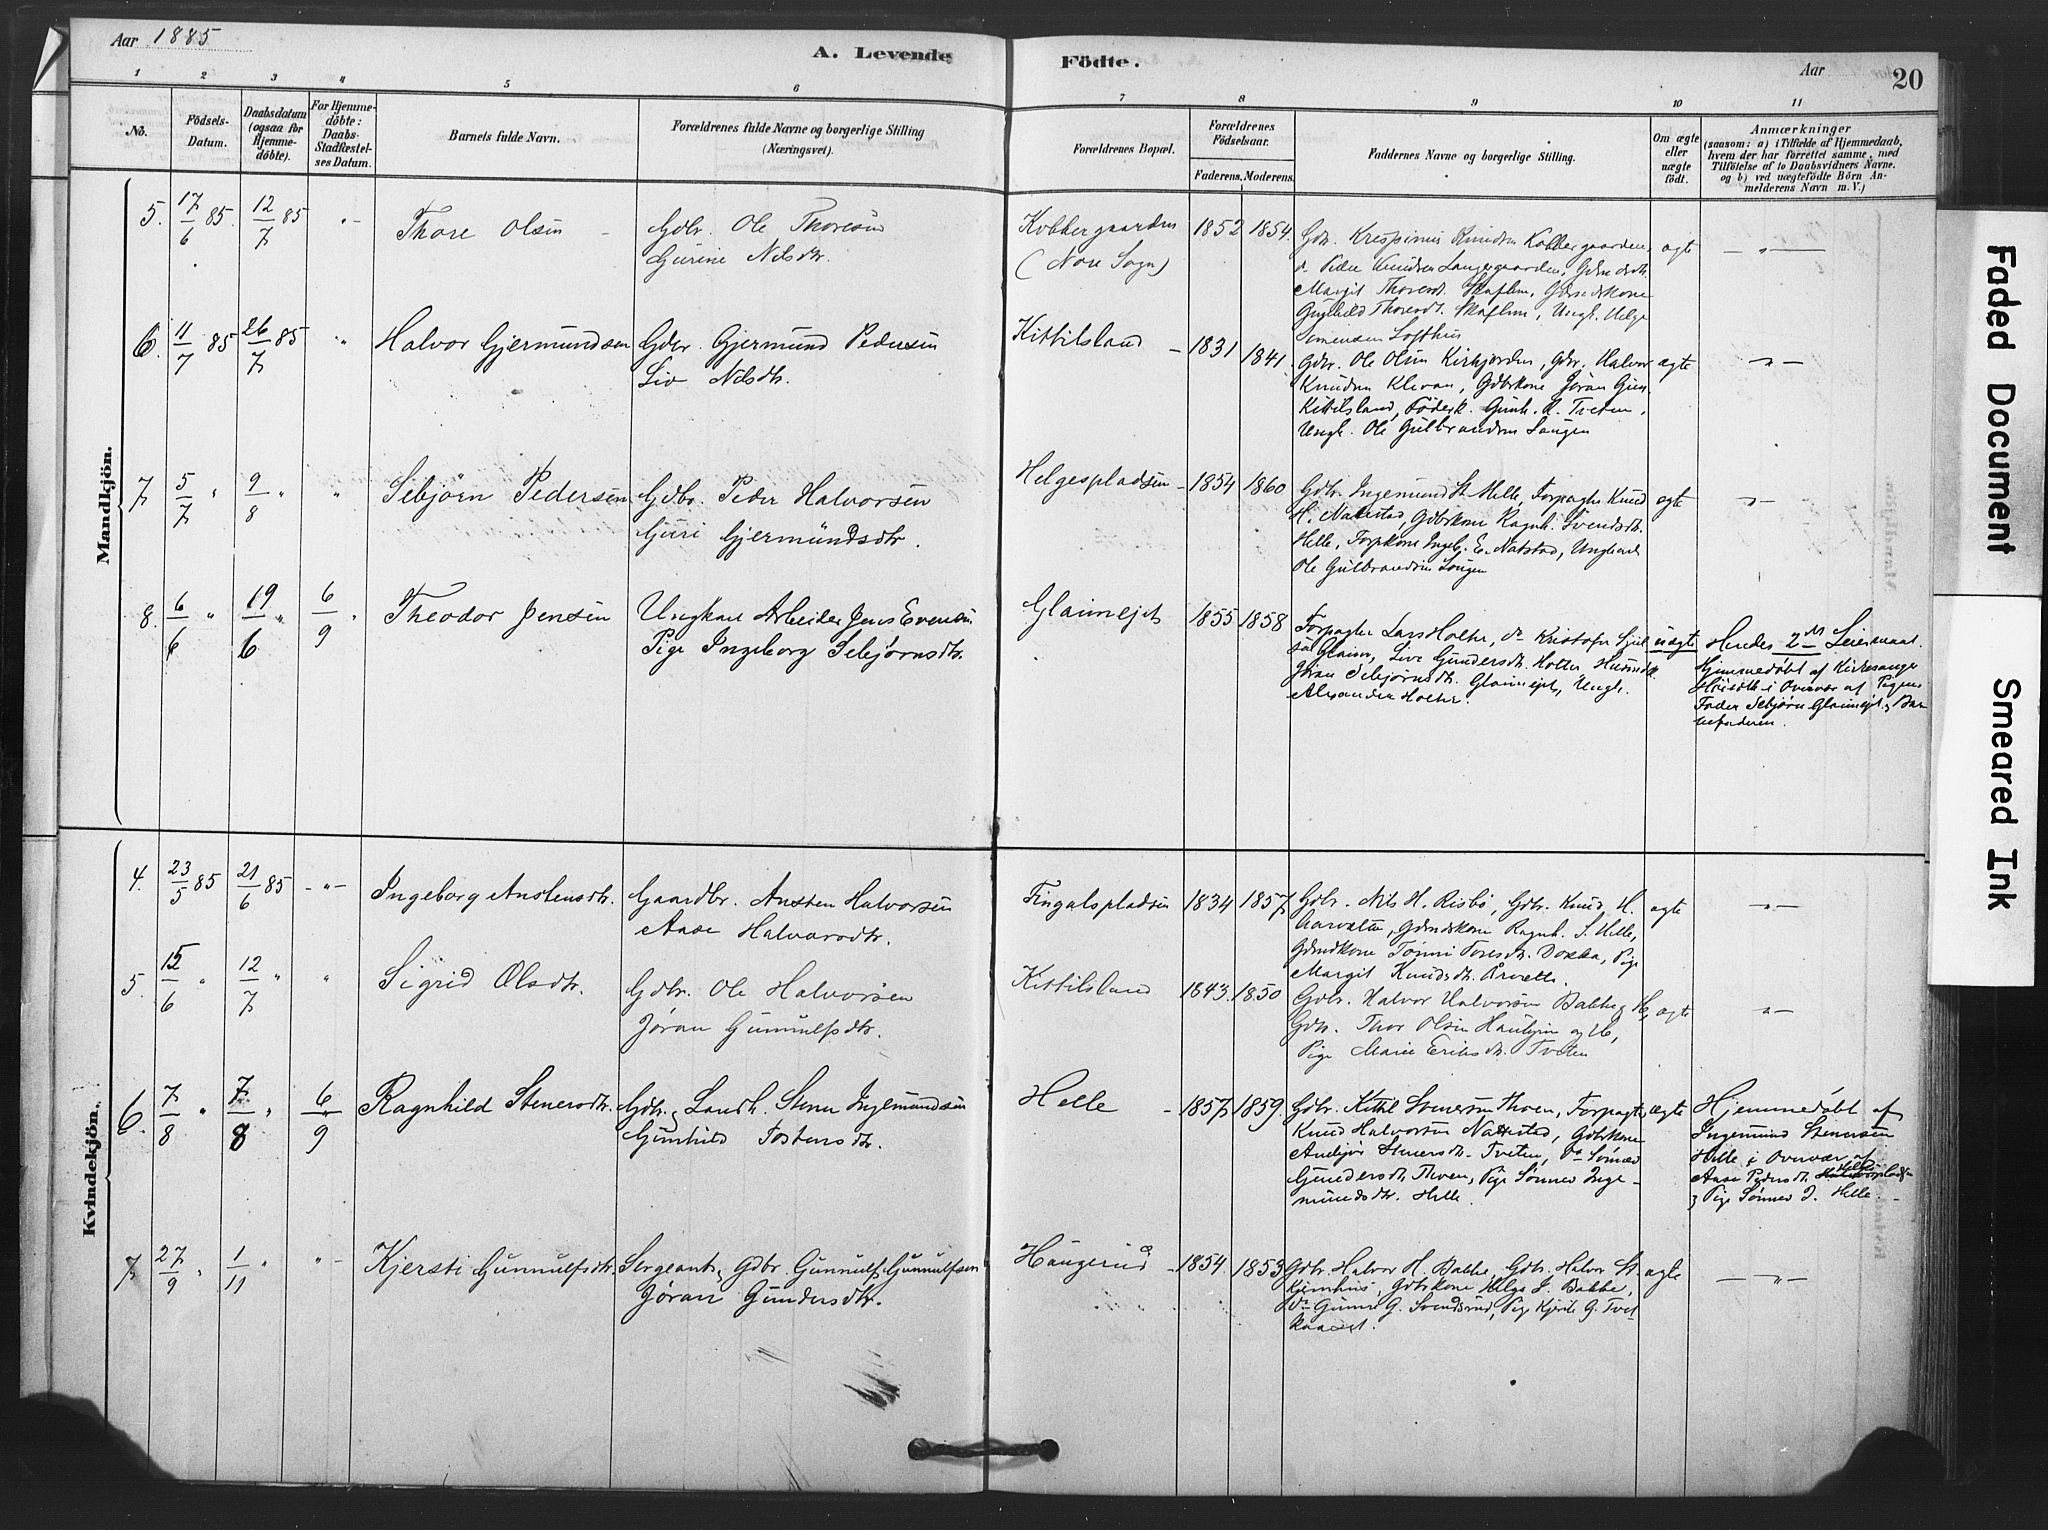 Aar 1885
A. Levende Födte.
Aar
20
1 2 3 4 5 6 7 8 9 10 11
No.
Födsels-Datum.
Daabsdatum (ogsaa for Hjemmedöbte).
For Hjemmedöbte: Daabs-Stadfæstelses Datum.
Barnets fulde Navn.
Forældrenes fulde Navne og borgerlige Stilling (Næringsvei).
Forældrenes Bopæl.
Forældrenes Födselsaar.
Faderens. Moderens.
Faddernes Navne og borgerlige Stilling.
Om ægte eller uægte födt.
Anmærkninger
(saasom: a) i Tilfælde af Hjemmedaab,
hvem der har forrettet samme, med
Tilföielse af to Daabsvidners Navne.
og b) ved uægtefödte Börn Anmelderens Navn m. V.)
Mandkjön.
5. 17/6 85. 12/7 85 Thore Olsen
Gdbr. Ole Thoresen
Gurine Nilsdtr.
Kobbergaarden
(Nore Sogn)
1852 1854.
Gdr. Krespinus Knudsen Kobbergaarden,
Margit Thoresd. Skaflem,
Gunhild Thoresdt. Skaflem, Ungk. Helge
Simensen Lofthus
ægte
6. 11/7 85 26/7 85 Halvor Gjermundsen
Gdbr. Gjermund Pedersen
Liv Nilsdtr.
Kittilsland
1831 1841.
Gdbr. Ole Olsen Kirkjorden, Gdbr. Halvor
Knudsen Klevan, Gdbrkone Jöran
Kittilsland, Föderk. Gunh. Tveten,
Ungk. Ole Gulbrandsen Laugen
ægte
7 5/7 " 9/8 " " Sebjörn Pedersen
Gdbr. Peder Halvorsen
Guri Gjermundsdtr.
Helgespladsen
1854 1860
Gdbr. Ingemund St. Helle, Forpagter Knud
H. Nattestad, Gdbrkone Ragnh. Svendsdtr.
Helle, Forpkone Ingeb. E. Natstad, Ungkarl
Ole Gulbrandsen Laugen
ægte
8. 6/6 " 19/6 " 6/9 " Theodor Jensen
Ungkarl Arbeider Jens Evensen
Pige Ingeborg Sebjörnsdtr.
Glaimejet
1855 1858
Forpagter Lars Holter,
Glaim, Live Gundersdtr. Holter
Jöran Sebjörnsdtr. Glaimejet, Ungk.
Alexander Holter.
uægte
Hendes 2det Leiermaal
Hjemmedöbt af Kirkesanger
i Overvær af Pigens
Fader Sebjörn Glaimejet, Barnefaderen.
Kvindekjön.
4. 23/5 85 21/6 85 Ingeborg Anstensdtr.
Gaardbr. Ansten Halvorsen
Aase Halvorsdtr.
Fingalspladsen
1834 1857
Gdbr. Nils H. Risbö, Gdbr. Knud H.
Aarvelta, Gdmdskone Ragnh. S. Helle,
Gdmdkone Tönni Toresdtr. Pige
Margit Knudsdtr. Årvelta.
ægte
5. 15/6 " 12/7 " " Sigrid Olsdtr.
Gdbr. Ole Halvorsen
Jöran Gunnulfsdtr.
Kittilsland
1843. 1850
Gdbr. Halvor Halvorsen Bakke & H.,
Gdbr. Thor Olsen og H,
Pige Marie Eriksdtr. Tveten
ægte
6. 7/8 " 7/8 " 6/9 Ragnhild Stenersdtr.
Gdbr. & Landh. Stener Ingemundsen
Gunhild Tostensdtr.
Helle
1857 1859.
Gdbr. Kittil Svensen Thoen, Forpagter
Knud Halvorsen Nattestad, Gdbrkone
Anbjör Stenersdtr. Tveten, do Sönnev
Gundersdtr. Thoen, Pige Sönnev Ingemundsdtr. Helle.
ægte
Hjemmedöbt af
Ingemund Stenersen
Helle i Overvær af
Aase Pedersdtr.
& Pige Sönnev I. Helle.
7 27/9 " 1/11 " Kjersti Gunnulfsdtr.
Sergeant & Gdbr. Gunnulf Gunnulfsen
Jöran Gundersdtr.
Haugerud
1854. 1853
Gdbr. Halvor H. Bakke, Gdbr. Halvor St.
Kjemhus, Gdbrkone Helga J. Bakke,
do Gunne G. Svendsrud, Pige Kjersti G.
ægte
Faded Document
Smeared Ink